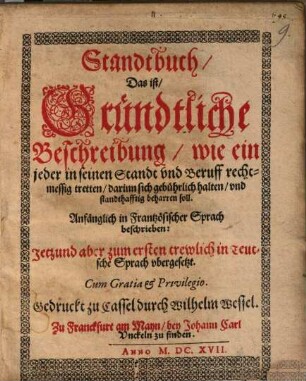 Standtbuch/
Das ist/
Gründtliche
Beschreibung/ wie ein
jeder in seinen Standt vnd Beruff recht-
messig tretten/ darinn sich gebührlich halten/ vnd
standthafftig beharren soll.
Anfänglich in Frantzösischer Sprach
beschrieben:
Jetzund aber zum ersten trewlich in Teut-
sche Sprach vbergesetzt.
Cum Gratia & Privilegio.
Gedruckt zu Cassel durch Wilhelm Wessel.
Zu Franckfurt am Mayn/ bey Johann Carl
Vnckeln zu finden.
ANNO M. DC. XVII.